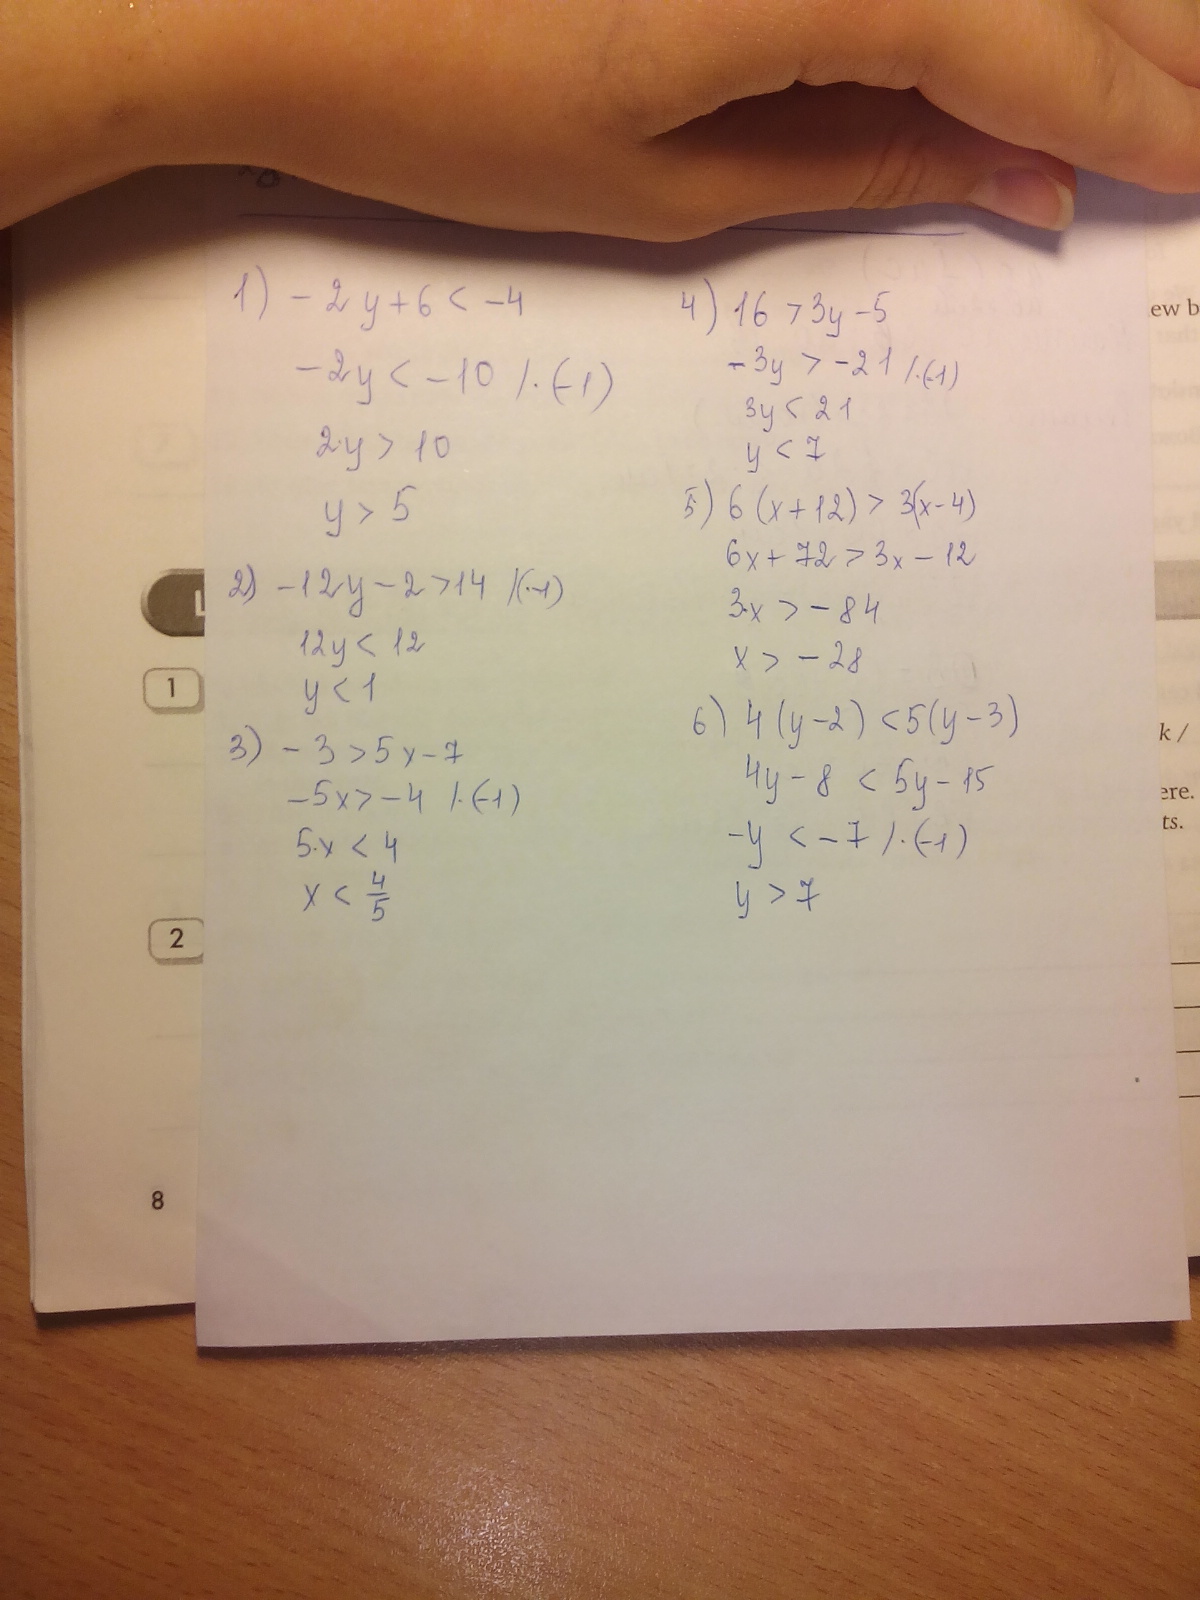 1) -2y+6 < -4
-2y < -10 /·(-1)
2y > 10
y > 5
2) -12y-2>14 /(·-1)
12y < 12
y < 1
3) -3>5x-7
-5x>-4 /·(-1)
5x < 4
x < 4/5
4) 16 >3y-5
-3y > -21 /·(-1)
3y < 21
y < 7
5) 6(x+12) > 3(x-4)
6x+72>3x-12
3x > -84
x > -28
6) 4(y-2) <5(y-3)
4y-8 < 5y-15
-y < -7 /·(-1)
y > 7
L
1
2
8
ew b
k /
ere.
ts.